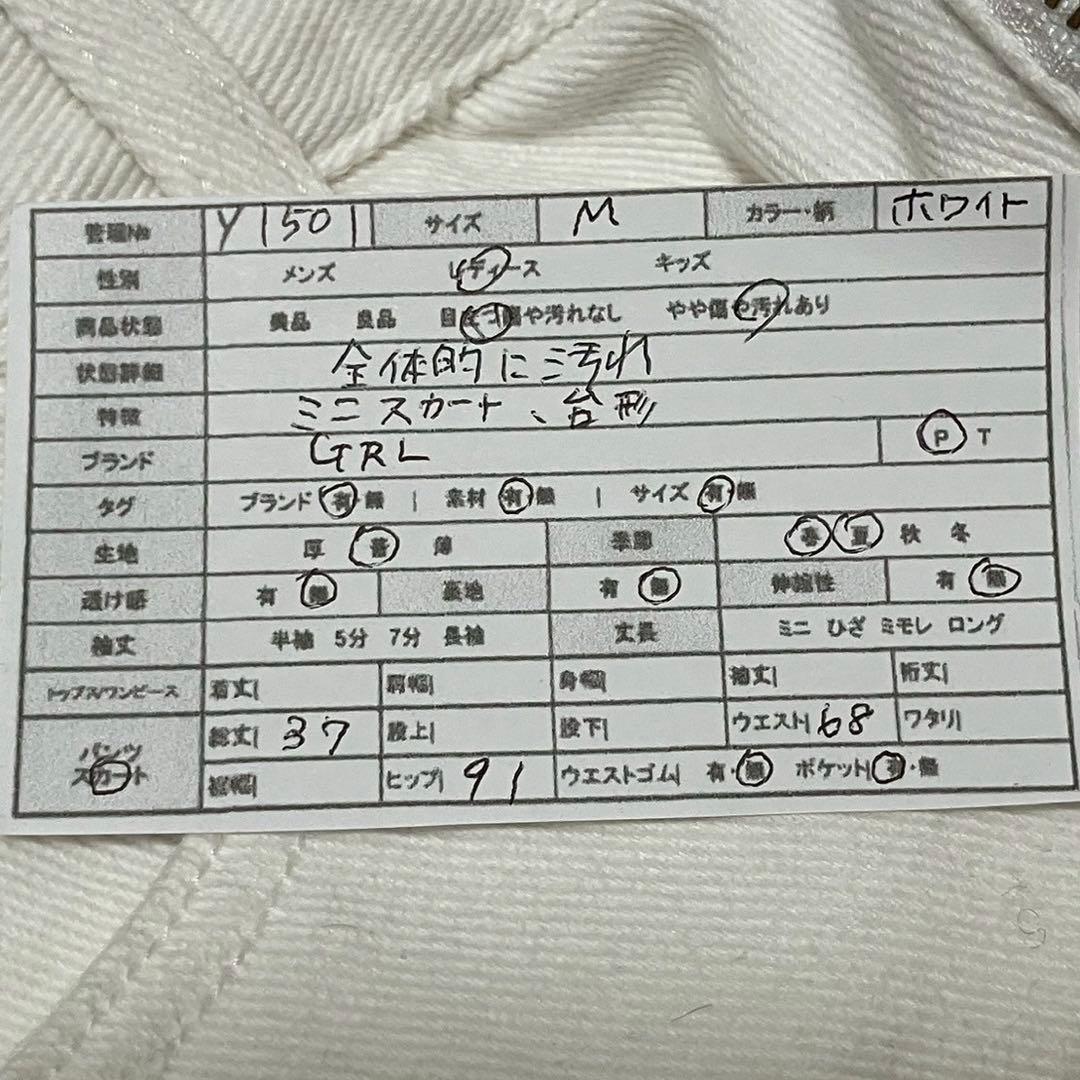 管理No Y1501 サイズ M カラー・柄 ホワイト
性別 メンズ レディース キッズ
商品状態 美品 良品 目立つ傷や汚れなし やや傷や汚れあり
状態詳細 全体的に汚れ
特徴 ミニスカート、台形
ブランド GRL P T
タグ ブランド 有・無 | 素材 有・無 | サイズ 有・無
生地 厚 普 薄 季節 春 夏 秋 冬
透け感 有 無 裏地 有 無 伸縮性 有 無
袖丈 半袖 5分 7分 長袖 丈長 ミニ ひざ ミモレ ロング
トップス/ワンピース 着丈| 肩幅| 身幅| 袖丈| 裄丈|
パンツ スカート 総丈| 37 股上| 股下| ウエスト| 68 ワタリ|
裾幅| ヒップ| 91 ウエストゴム| 有・無 ポケット| 有・無